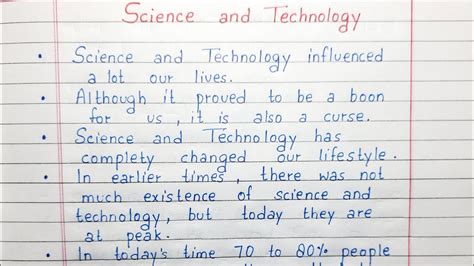 Science and Technology
• Science and Technology influenced
a lot our lives.
• Although it proved to be a boon
for us, it is also a curse.
• Science and Technology has
complety changed our lifestyle.
• In earlier times, there was not
much existence of science and
technology, but today they are
at peak.
• In today's time 70 to 80% people